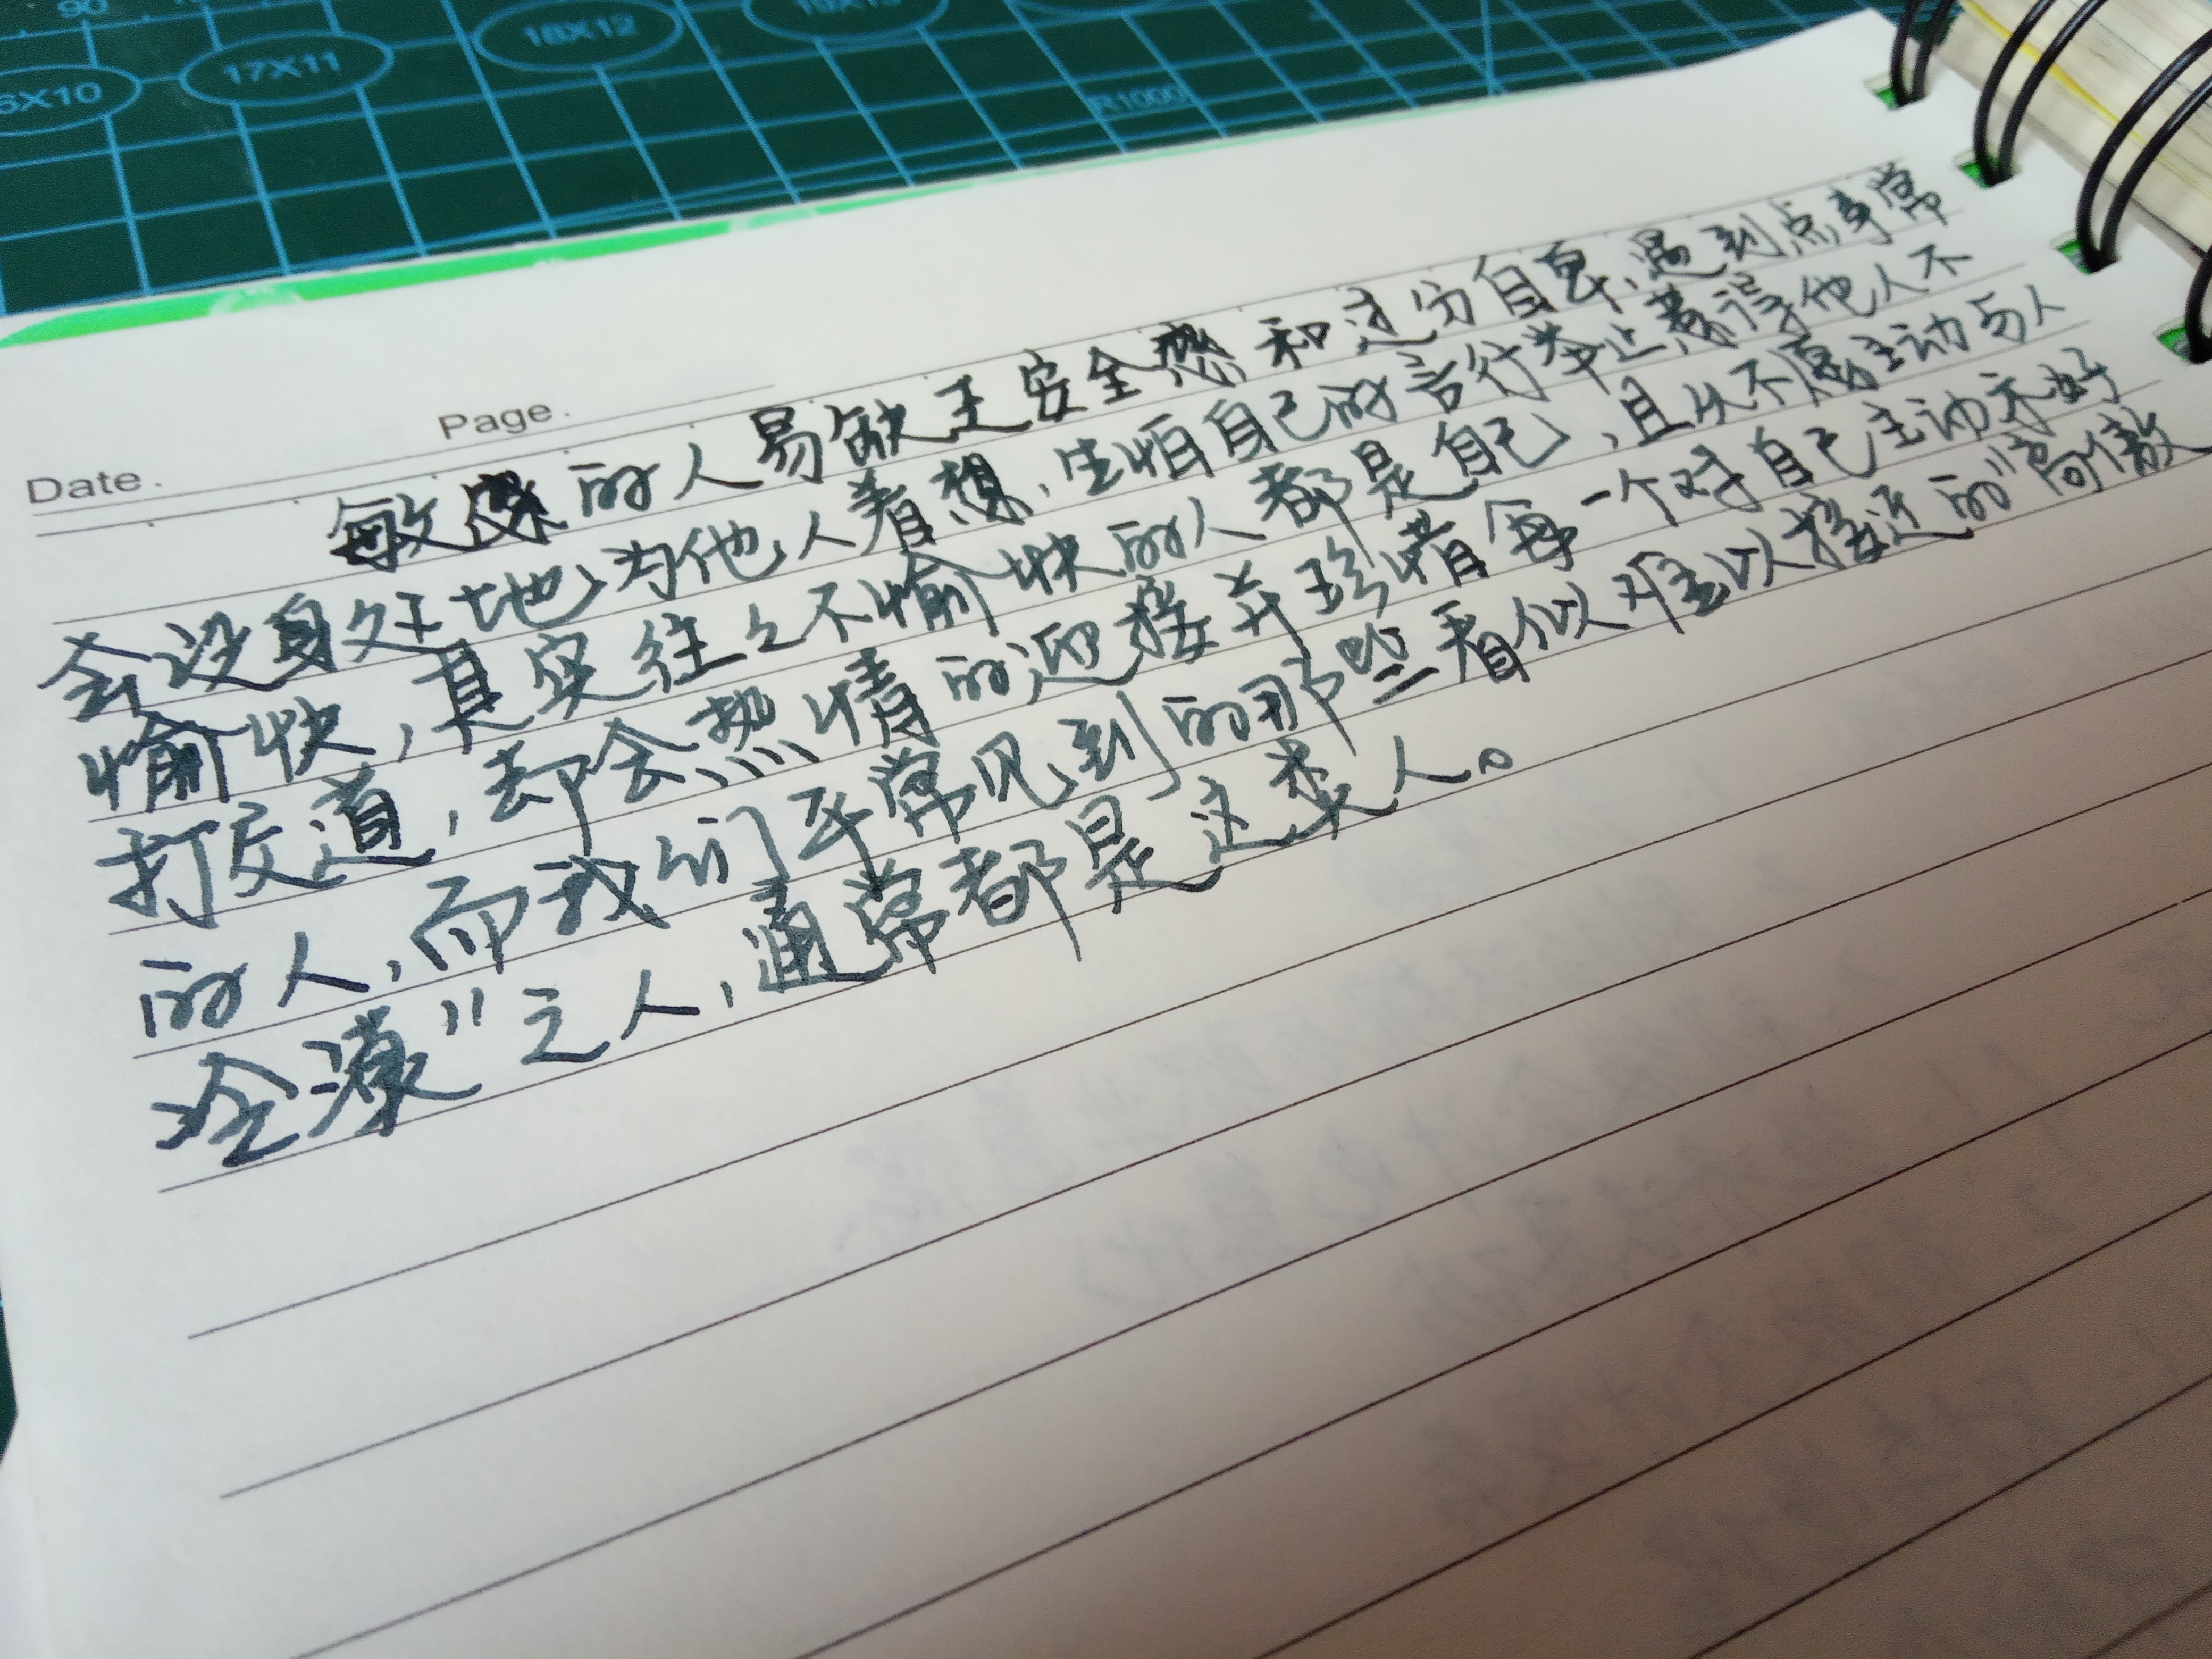 90
16X10
17X11
18X12
19X13
R1000
Page.
Date.
敏感的人易缺乏安全感和过分自卑，遇到点事常
会设身处地为他人着想，生怕自己的言行举止惹得他人不
愉快，其实往往不愉快的人都是自己，且从不愿主动与人
打交道，却会热情的迎接并珍惜每一个对自己主动示好
的人，而我们平常见到的那些看似难以接近的“高傲
冷漠”之人，通常都是这类人。